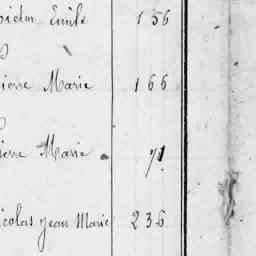 Victor Emile 156
Pierre Marie 166
Pierre Marie 71
Nicolas Jean Marie 236